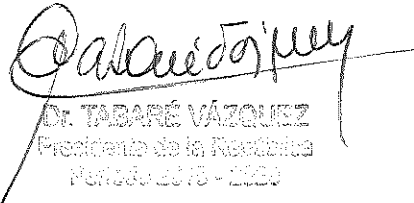 Dr. TABARÉ VÁZQUEZ
Presidente de la República
Período 2015 - 2020